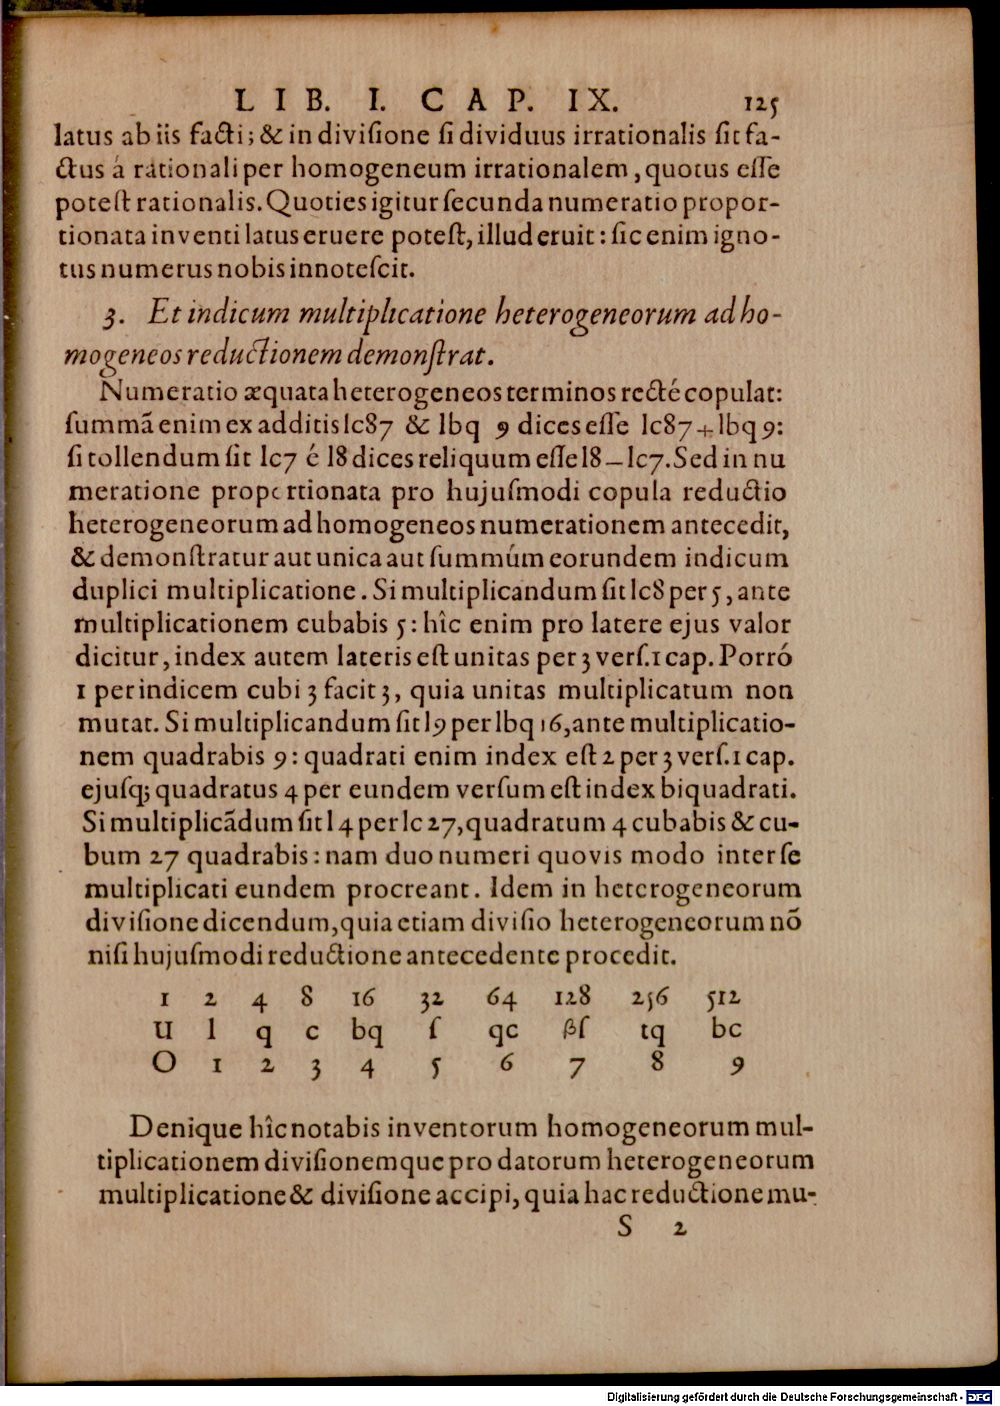 LIB. I. CAP. IX. 125
latus ab iis facti; & in diviſione ſi dividuus irrationalis ſit fa-
ctus á rationali per homogeneum irrationalem, quotus eſſe
poteſt rationalis. Quoties igitur ſecunda numeratio propor-
tionata inventi latus eruere poteſt, illud eruit: ſic enim igno-
tus numerus nobis innoteſcit.
3. Et indicum multiplicatione heterogeneorum ad ho-
mogeneos reductionem demonſtrat.
Numeratio æquata heterogeneos terminos recté copulat:
ſummã enim ex additis lc87 & lbq 9 dices eſſe lc87+lbq9:
ſi tollendum ſit lc7 é l8 dices reliquum eſſe l8–lc7. Sed in nu
meratione proportionata pro hujuſmodi copula reductio
heterogeneorum ad homogeneos numerationem antecedit,
& demonſtratur aut unica aut ſummúm eorundem indicum
duplici multiplicatione. Si multiplicandum ſit lc8 per 5, ante
multiplicationem cubabis 5: hîc enim pro latere ejus valor
dicitur, index autem lateris eſt unitas per 3 verſ. 1 cap. Porró
1 per indicem cubi 3 facit 3, quia unitas multiplicatum non
mutat. Si multiplicandum ſit l9 per lbq 16, ante multiplicatio-
nem quadrabis 9: quadrati enim index eſt 2 per 3 verſ. 1 cap.
ejuſq; quadratus 4 per eundem verſum eſt index biquadrati.
Si multiplicãdum ſit l 4 per lc 27, quadratum 4 cubabis & cu-
bum 27 quadrabis: nam duo numeri quovis modo inter ſe
multiplicati eundem procreant. Idem in heterogeneorum
diviſione dicendum, quia etiam diviſio heterogeneorum nõ
niſi hujuſmodi reductione antecedente procedit.
1 2 4 8 16 32 64 128 256 512
U l q c bq ſ qc βſ tq bc
O 1 2 3 4 5 6 7 8 9
Denique hîc notabis inventorum homogeneorum mul-
tiplicationem diviſionemque pro datorum heterogeneorum
multiplicatione & diviſione accipi, quia hac reductione mu-
S 2
Digitalisierung gefördert durch die Deutsche Forschungsgemeinschaft - DFG